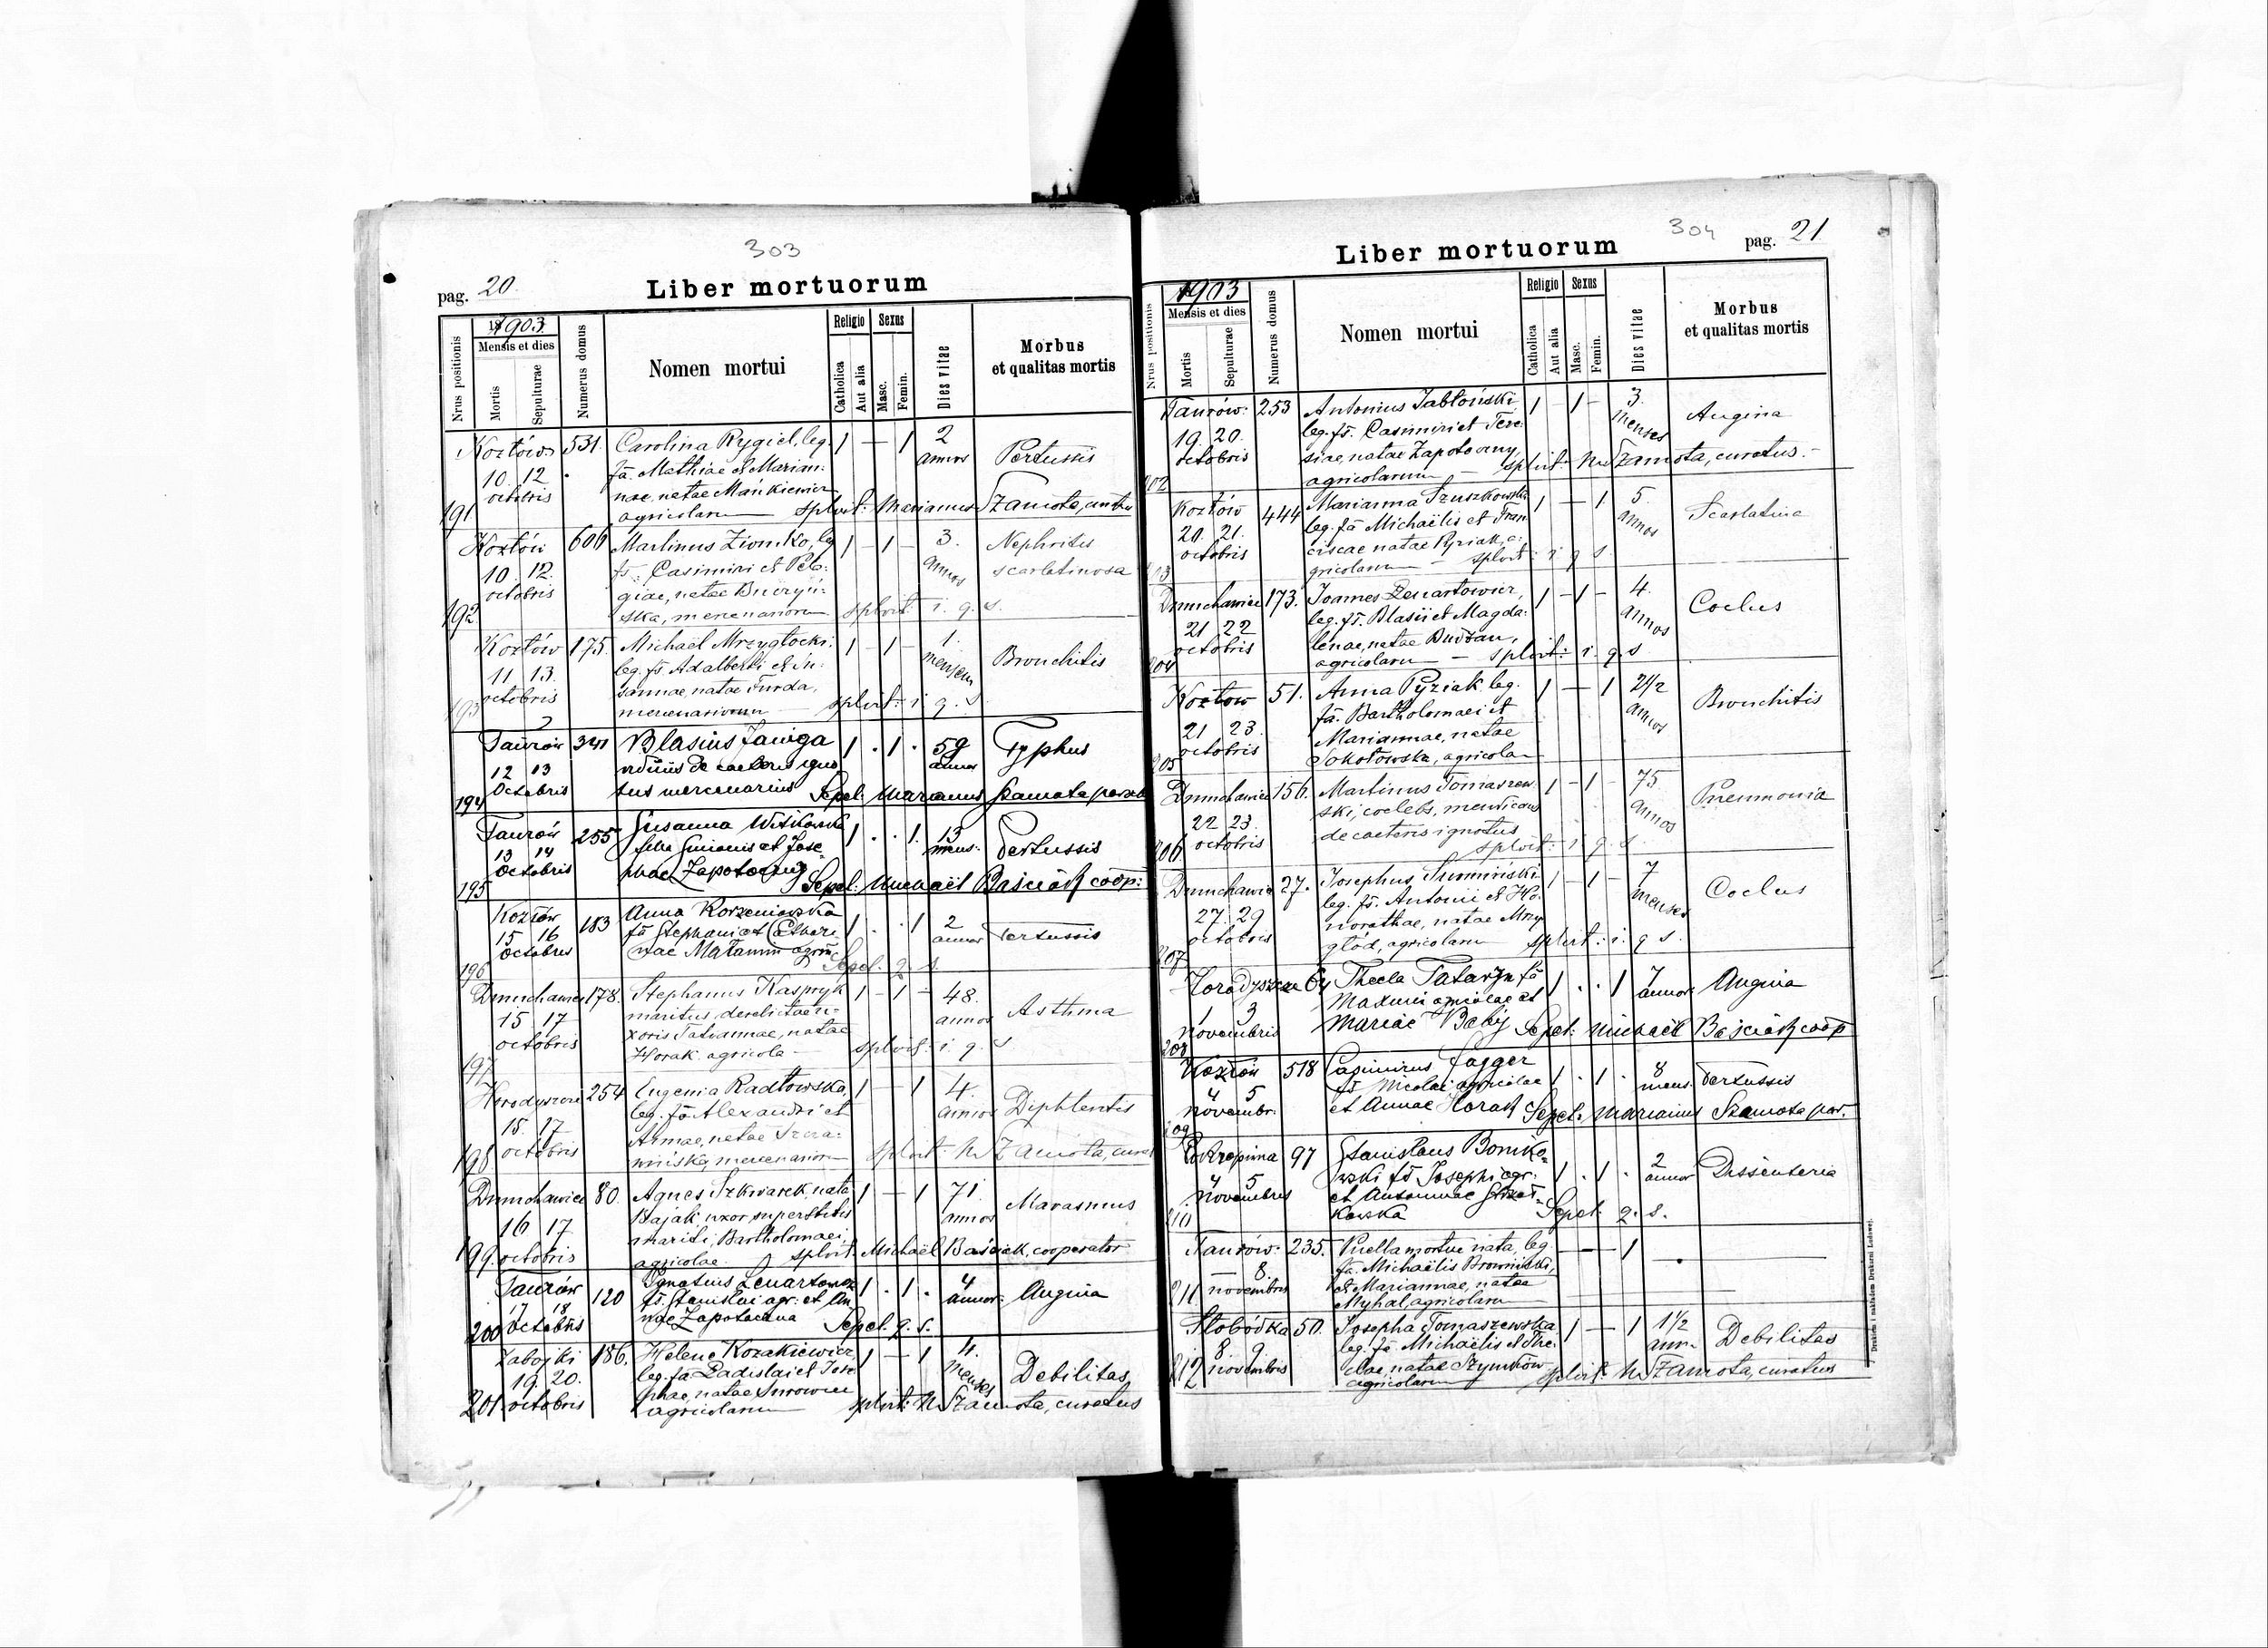 303
pag. 20.
Liber mortuorum
Nrus positionis
1903.
Mensis et dies
Mortis
Sepulturae
Numerus domus
Nomen mortui
Religio
Catholica
Aut alia
Sexus
Masc.
Femin.
Dies vitae
Morbus
et qualitas mortis
Kozłów 531. Carolina Rygiel, leg. 1 — 1 2 annos Pertussis
10. 12. fa. Mathiae et Marian:
octobris nae, natae Mańkiewicz
191 agricolarum splvit: Marianus Szamota,
Kozłów 606 Martinus Zionko, leg 1 - 1 - 3. annos Nephritis
10. 12. fs. Casimiri et Pela: scarlatinosa
octobris giae, natae
192. ska, mercenariorum splvit: i. q. s.
Kozłów 175. Michaël Mrzygłocki, 1 - 1 - 1. mensem Bronchitis
11 13. leg. fs. Adalberti et Su:
octobris sannae, natae Furda,
193 mercenariorum splvit: i q. s
Taurów 341 Blasius Janiga 1 . 1 . 59 annor Typhus
12 13 viduus de caeteris igno
Octobris tus mercenarius Sepel: Marianus Szamota
194
Taurów 255 Susanna Witkowska 1 . . 1. 13 mens: Pertussis
13 14 filia Simionis et Jose
Octobris phae Zapotoczny Sepel: Michaël Baściak coop:
195
Kozłów 183 Anna Korzeniowska 1 . . 1 2 annor Pertussis
15 16 fa Stephani et Cathari
Octobris nae Sepel. q. s.
196
Dmuchawiec 178. Stephanus Kaspryk 1 - 1 - 48. annos Asthma
15 17 maritus derelictae u-
octobris xoris Tatiannae, natae
197 Horak agricola — splvit: i. q. s
254 Eugenia Radłowska, 1 — 1 4. annos Diphteritis
15. 17 leg. fa Alexandri et
octobris Annae, natae
198 mercenariorum splvit: M Szamota,
Dmuchawiec 80. Agnes Szkwarek, nata 1 — 1 71. annos Marasmus
16 17. Hajak, uxor superstitis
octobris mariti, Bartholomaei,
199. agricolae splvit: Michaël Baściak, cooperator
Taurów 120 Ignatius Lenartowicz 1 . 1 . 4 annor: Angina
17 18 fs. Stanislai agr: et An
200 Octobris nae Zapotoczna Sepel. q. s.
Zabojki 186. Helena Kozakiewicz, 1 — 1 4. menses Debilitas
19. 20. leg. fa Ladislai et Jose
octobris phae, natae Surowiec
201 agricolarum splvit: M Szamota, curatus
304
Liber mortuorum
pag. 21
Nrus positionis
1903
Mensis et dies
Mortis
Sepulturae
Numerus domus
Nomen mortui
Religio
Catholica
Aut alia
Sexus
Masc.
Femin.
Dies vitae
Morbus
et qualitas mortis
Taurów. 253 Antonius Jabłoński 1 - 1 - 3. menses Angina
19. 20. leg. fs. Casimiri et Tere
octobris siae, natae Zapotoczny,
202 agricolarum — splvit: M Szamota, curatus.-
Kozłów 444 Marianna 1 — 1 5. annos Scarlatina
20. 21. leg. fa Michaëlis et Fran
octobris ciscae natae Pyziak, a:
203 gricolarum — splvit: i q s.
Dmuchawiec 173. Joannes Lenartowicz, 1 - 1 - 4. annos Coclus
21 22 leg. fs. Blasii et Magda:
octobris lenae, natae Budzan,
204 agricolarum — splvit: i. q. s
Kozłow 51. Anna Pyziak, leg. 1 — 1 2 1/2 annos Bronchitis
21 23. fa. Bartholomaei et
octobris Mariannae, natae
205 Sokołowska, agricola
Dmuchawiec 156. Martinus Tomaszew 1 - 1 - 75 annos Pneumonia
22 23. ski, coelebs, mendicans
octobris de caeteris ignotus
206 splvit: i q. s.
Dmuchawiec 27. Josephus Sumiński 1 - 1 - 7 menses Coclus
27. 29 leg. fs. Antonii et Ho:
octobris norathae, natae Mrzy
207 głód, agricolarum splvit: i. q s.
64 Thecla Tataryn fa 1 . . 1 7 annor Angina
1 3 Maximi agricolae et
Novembris Mariae Babij Sepel: Michaël Baściak coop
208
Kozłów 518 Casimirus Jagger 1 . 1 . 8 mens. Pertussis
4 5 fs Nicolai agricolae
Novembr. et Annae Horak Sepel: Marianus Szamota par.
209
Pokropiwna 97 Stanislaus Boniko= 1 . 1 . 2 annor Dissenteria
4 5 wski fs Josephi agr:
Novembris et Antoninae
210 kowska Sepel. q. s.
Taurów. 235. Puella mortue nata, leg — — 1
— 8. fa. Michaëlis
novembris et Mariannae, natae
211 Myhal, agricolarum
Słobódka 50. Josepha Tomaszewska 1 — 1 1 1/2 ann. Debilitas
8. 9. leg. fa Michaëlis et The:
novembris clae, natae Szymków
212 agricolarum splvit: M Szamota, curatus
Drukiem i nakładem Drukarni Ludowej.